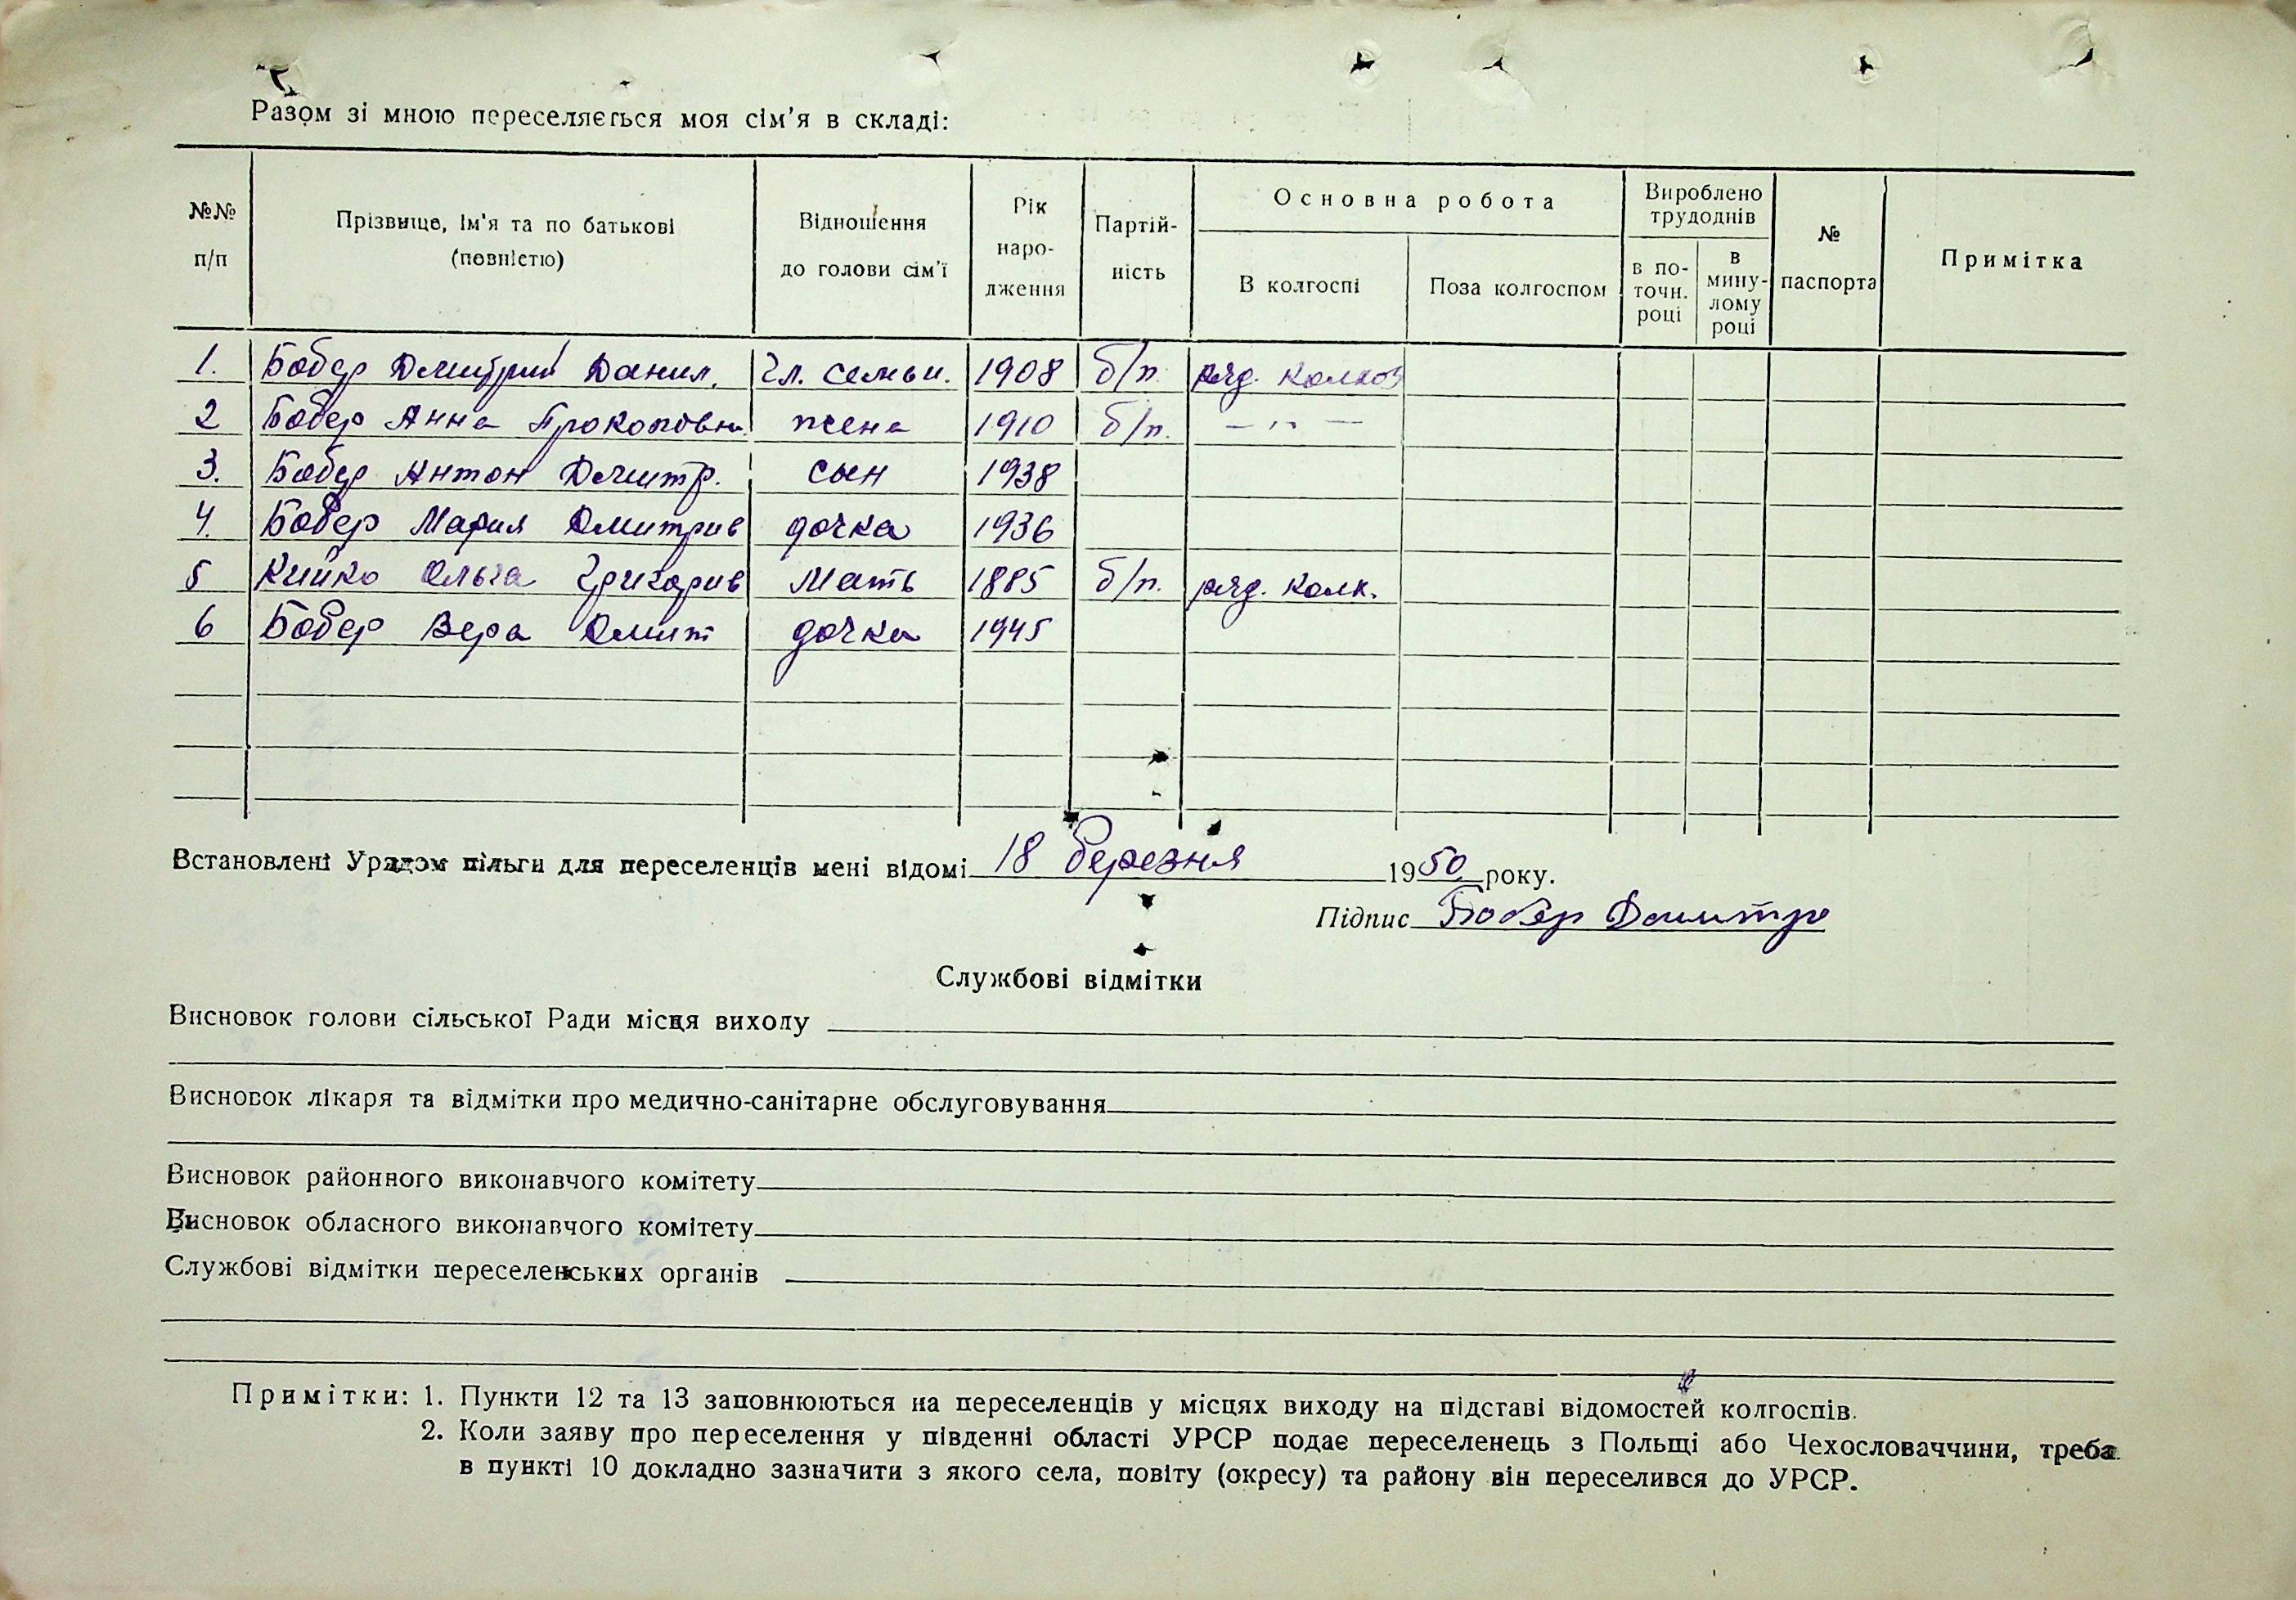 Разом зі мною переселяється моя сім'я в складі:
№№ п/п | Прізвище, ім'я та по батькові (повністю) | Відношення до голови сім'ї | Рік народження | Партійність | Основна робота | Вироблено трудоднів | № паспорта | Примітка
В колгоспі | Поза колгоспом | в поточн. році | в минулому році
1. Бобер Дмитрий Данил. Гл. семьи. 1908 б/п. ряд. колхоз
2 Бобер Анна Прокоповна жена 1910 б/п. — " —
3. Бобер Антон Дмитр. сын 1938
4. Бобер Мария Дмитрив дочка 1936
5 Кийко Ольга Григорив Мать 1885 б/п. ряд. колх.
6 Бобер Вера Дмит дочка 1945
Встановлені Урядом пільги для переселенців мені відомі 18 березня 1950 року.
Підпис Бобер Дмитро
Службові відмітки
Висновок голови сільської Ради місця виходу
Висновок лікаря та відмітки про медично-санітарне обслуговування
Висновок районного виконавчого комітету
Висновок обласного виконавчого комітету
Службові відмітки переселенських органів
Примітки: 1. Пункти 12 та 13 заповнюються на переселенців у місцях виходу на підставі відомостей колгоспів.
2. Коли заяву про переселення у південні області УРСР подає переселенець з Польщі або Чехословаччини, треба
в пункті 10 докладно зазначити з якого села, повіту (окресу) та району він переселився до УРСР.